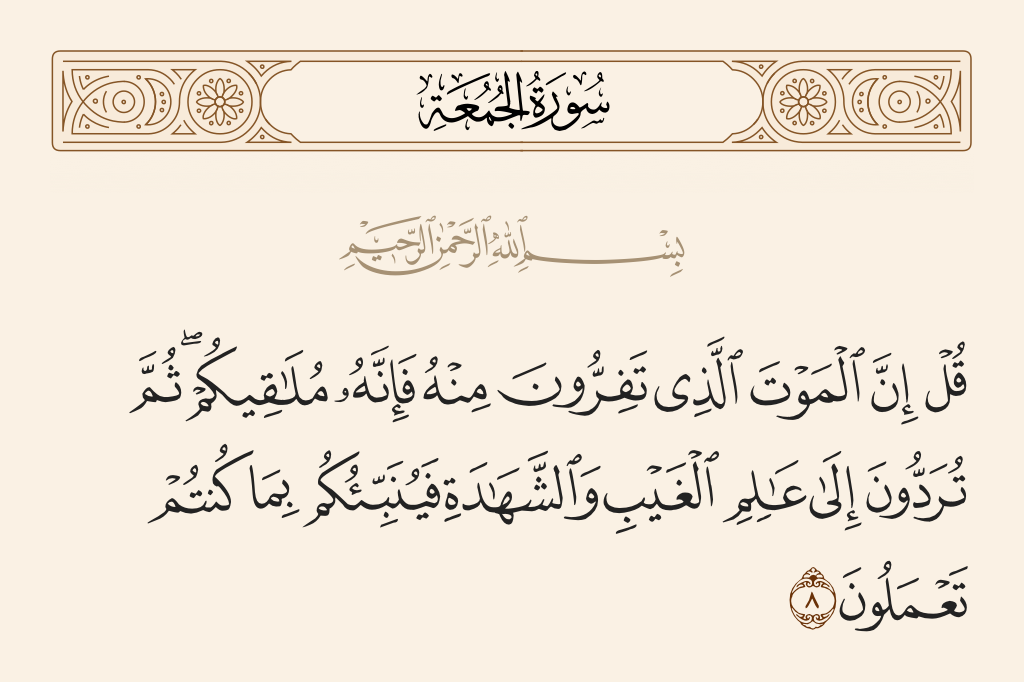 سُورَةُ الجُمُعَةِ
بِسْمِ ٱللَّهِ ٱلرَّحْمَٰنِ ٱلرَّحِيمِ
قُلْ إِنَّ ٱلْمَوْتَ ٱلَّذِى تَفِرُّونَ مِنْهُ فَإِنَّهُۥ مُلَـٰقِيكُمْ ۖ ثُمَّ
تُرَدُّونَ إِلَىٰ عَـٰلِمِ ٱلْغَيْبِ وَٱلشَّهَـٰدَةِ فَيُنَبِّئُكُم بِمَا كُنتُمْ
تَعْمَلُونَ ٨